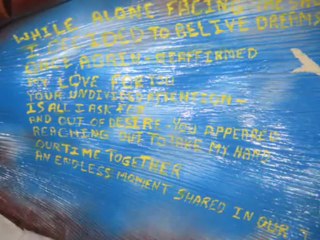 WHILE ALONE FACING THE
I DECIDED TO BELIVE DREAMS
ONCE AGAIN REAFFIRMED
MY LOVE FOR YOU
YOUR UNDIVIDED ATTENTION
IS ALL I ASK FOR
AND OUT OF DESIRE YOU APPEARED
REACHING OUT TO TAKE MY HAND
OUR TIME TOGETHER
AN ENDLESS MOMENT SHARED IN OUR